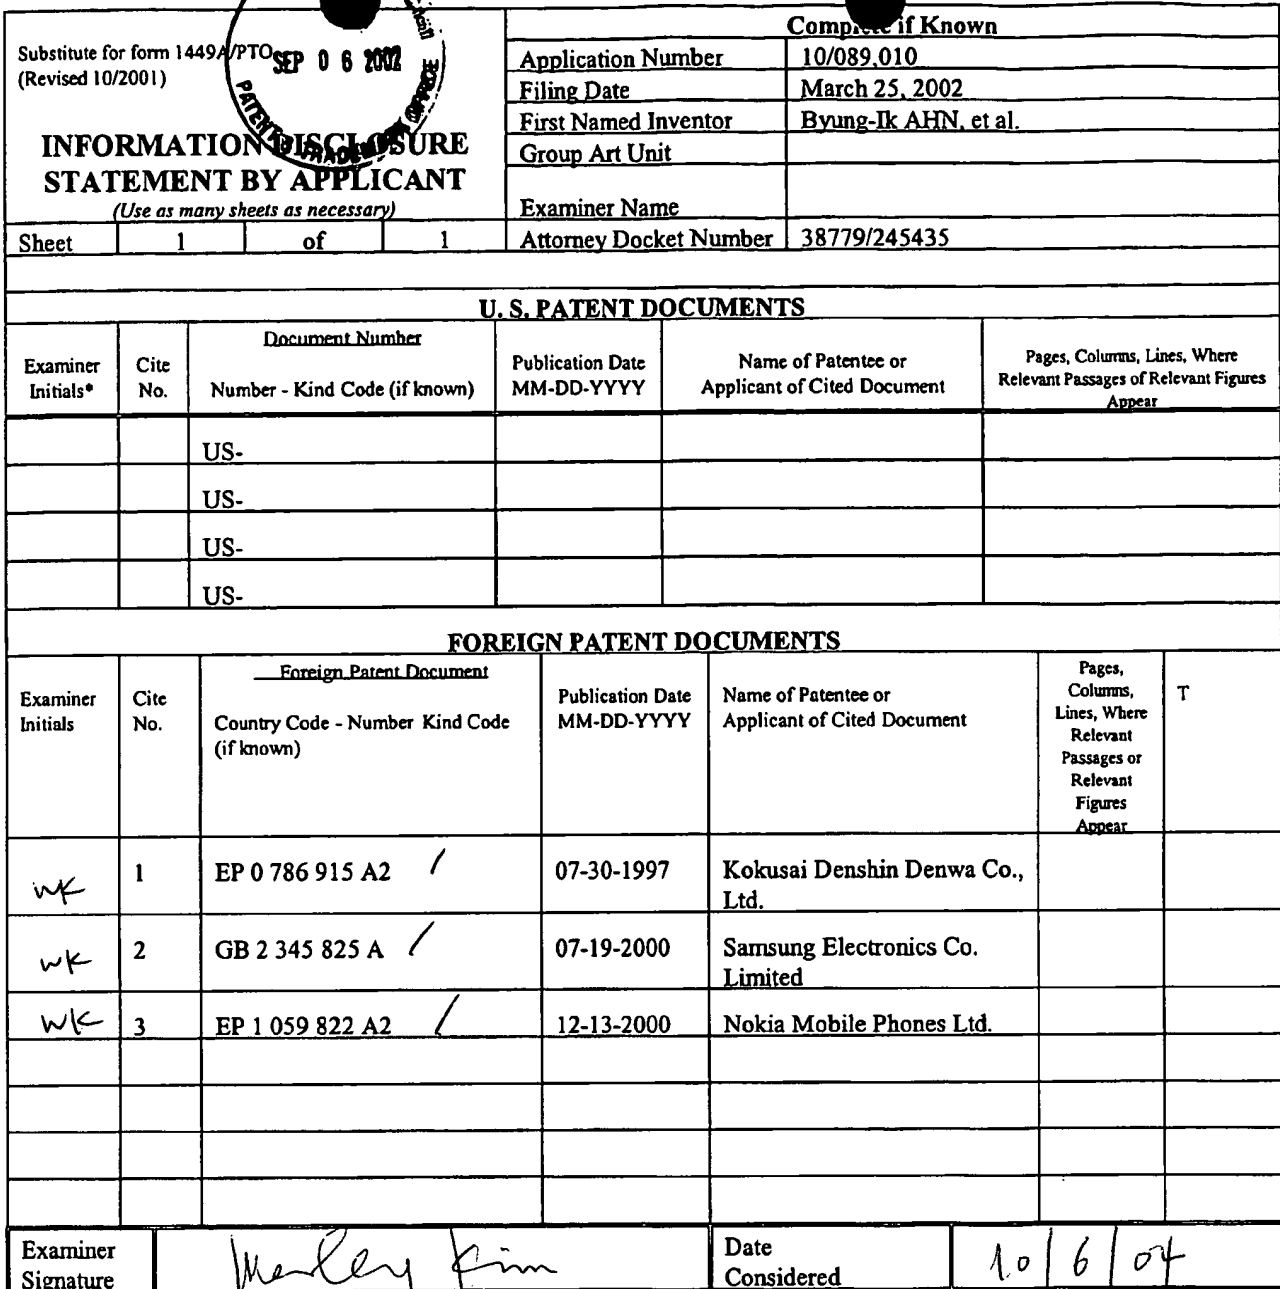 Substitute for form 1449A/PTO
(Revised 10/2001)
SEP 0 6 2002
PATENT & TRADEMARK OFFICE
INFORMATION DISCLOSURE
STATEMENT BY APPLICANT
(Use as many sheets as necessary)
Sheet 1 of 1
Complete if Known
Application Number 10/089,010
Filing Date March 25, 2002
First Named Inventor Byung-Ik AHN, et al.
Group Art Unit
Examiner Name
Attorney Docket Number 38779/245435
U. S. PATENT DOCUMENTS
Examiner
Initials*
Cite
No.
Document Number
Number - Kind Code (if known)
Publication Date
MM-DD-YYYY
Name of Patentee or
Applicant of Cited Document
Pages, Columns, Lines, Where
Relevant Passages of Relevant Figures
Appear
US-
US-
US-
US-
FOREIGN PATENT DOCUMENTS
Examiner
Initials
Cite
No.
Foreign Patent Document
Country Code - Number Kind Code
(if known)
Publication Date
MM-DD-YYYY
Name of Patentee or
Applicant of Cited Document
Pages,
Columns,
Lines, Where
Relevant
Passages or
Relevant
Figures
Appear
T
WK 1 EP 0 786 915 A2 / 07-30-1997 Kokusai Denshin Denwa Co.,
Ltd.
WK 2 GB 2 345 825 A / 07-19-2000 Samsung Electronics Co.
Limited
WK 3 EP 1 059 822 A2 / 12-13-2000 Nokia Mobile Phones Ltd.
Examiner
Signature
Kim
Date
Considered
10/6/04